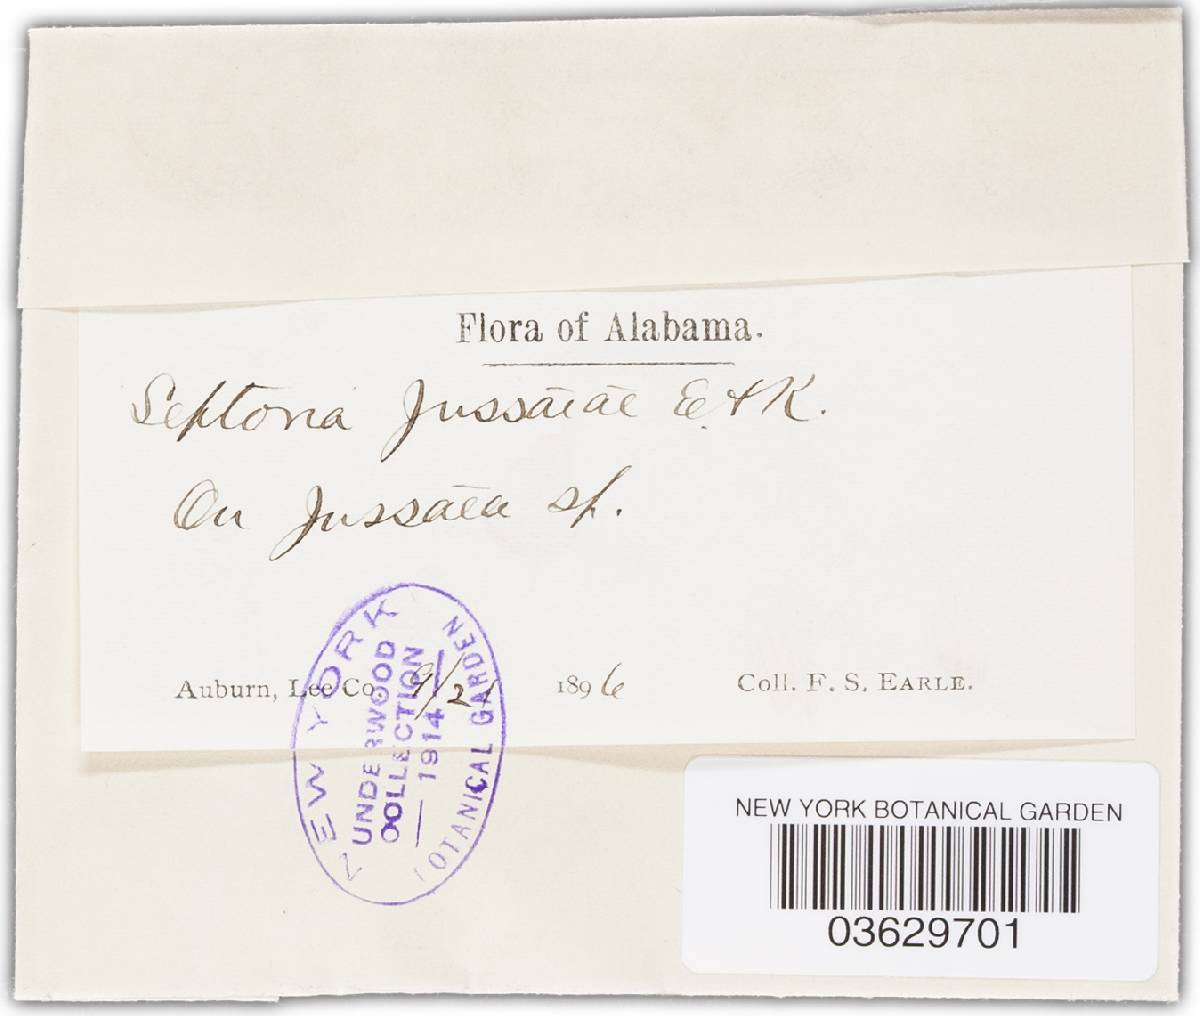 Flora of Alabama.
Septoria Jussaiae E & K.
On Jussaea sp.
Auburn, Lee Co. 9/2 1896 Coll. F. S. EARLE.
NEW YORK BOTANICAL GARDEN
UNDERWOOD
COLLECTION
— 1914 —
NEW YORK BOTANICAL GARDEN
03629701